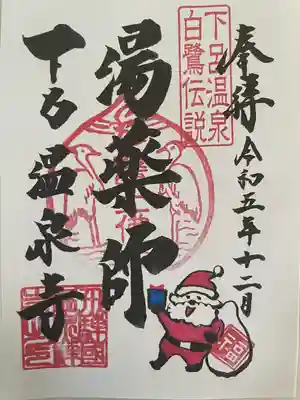 奉拝
令和五年十二月
下呂温泉
白鷺伝説
湯薬師
下呂温泉寺
福